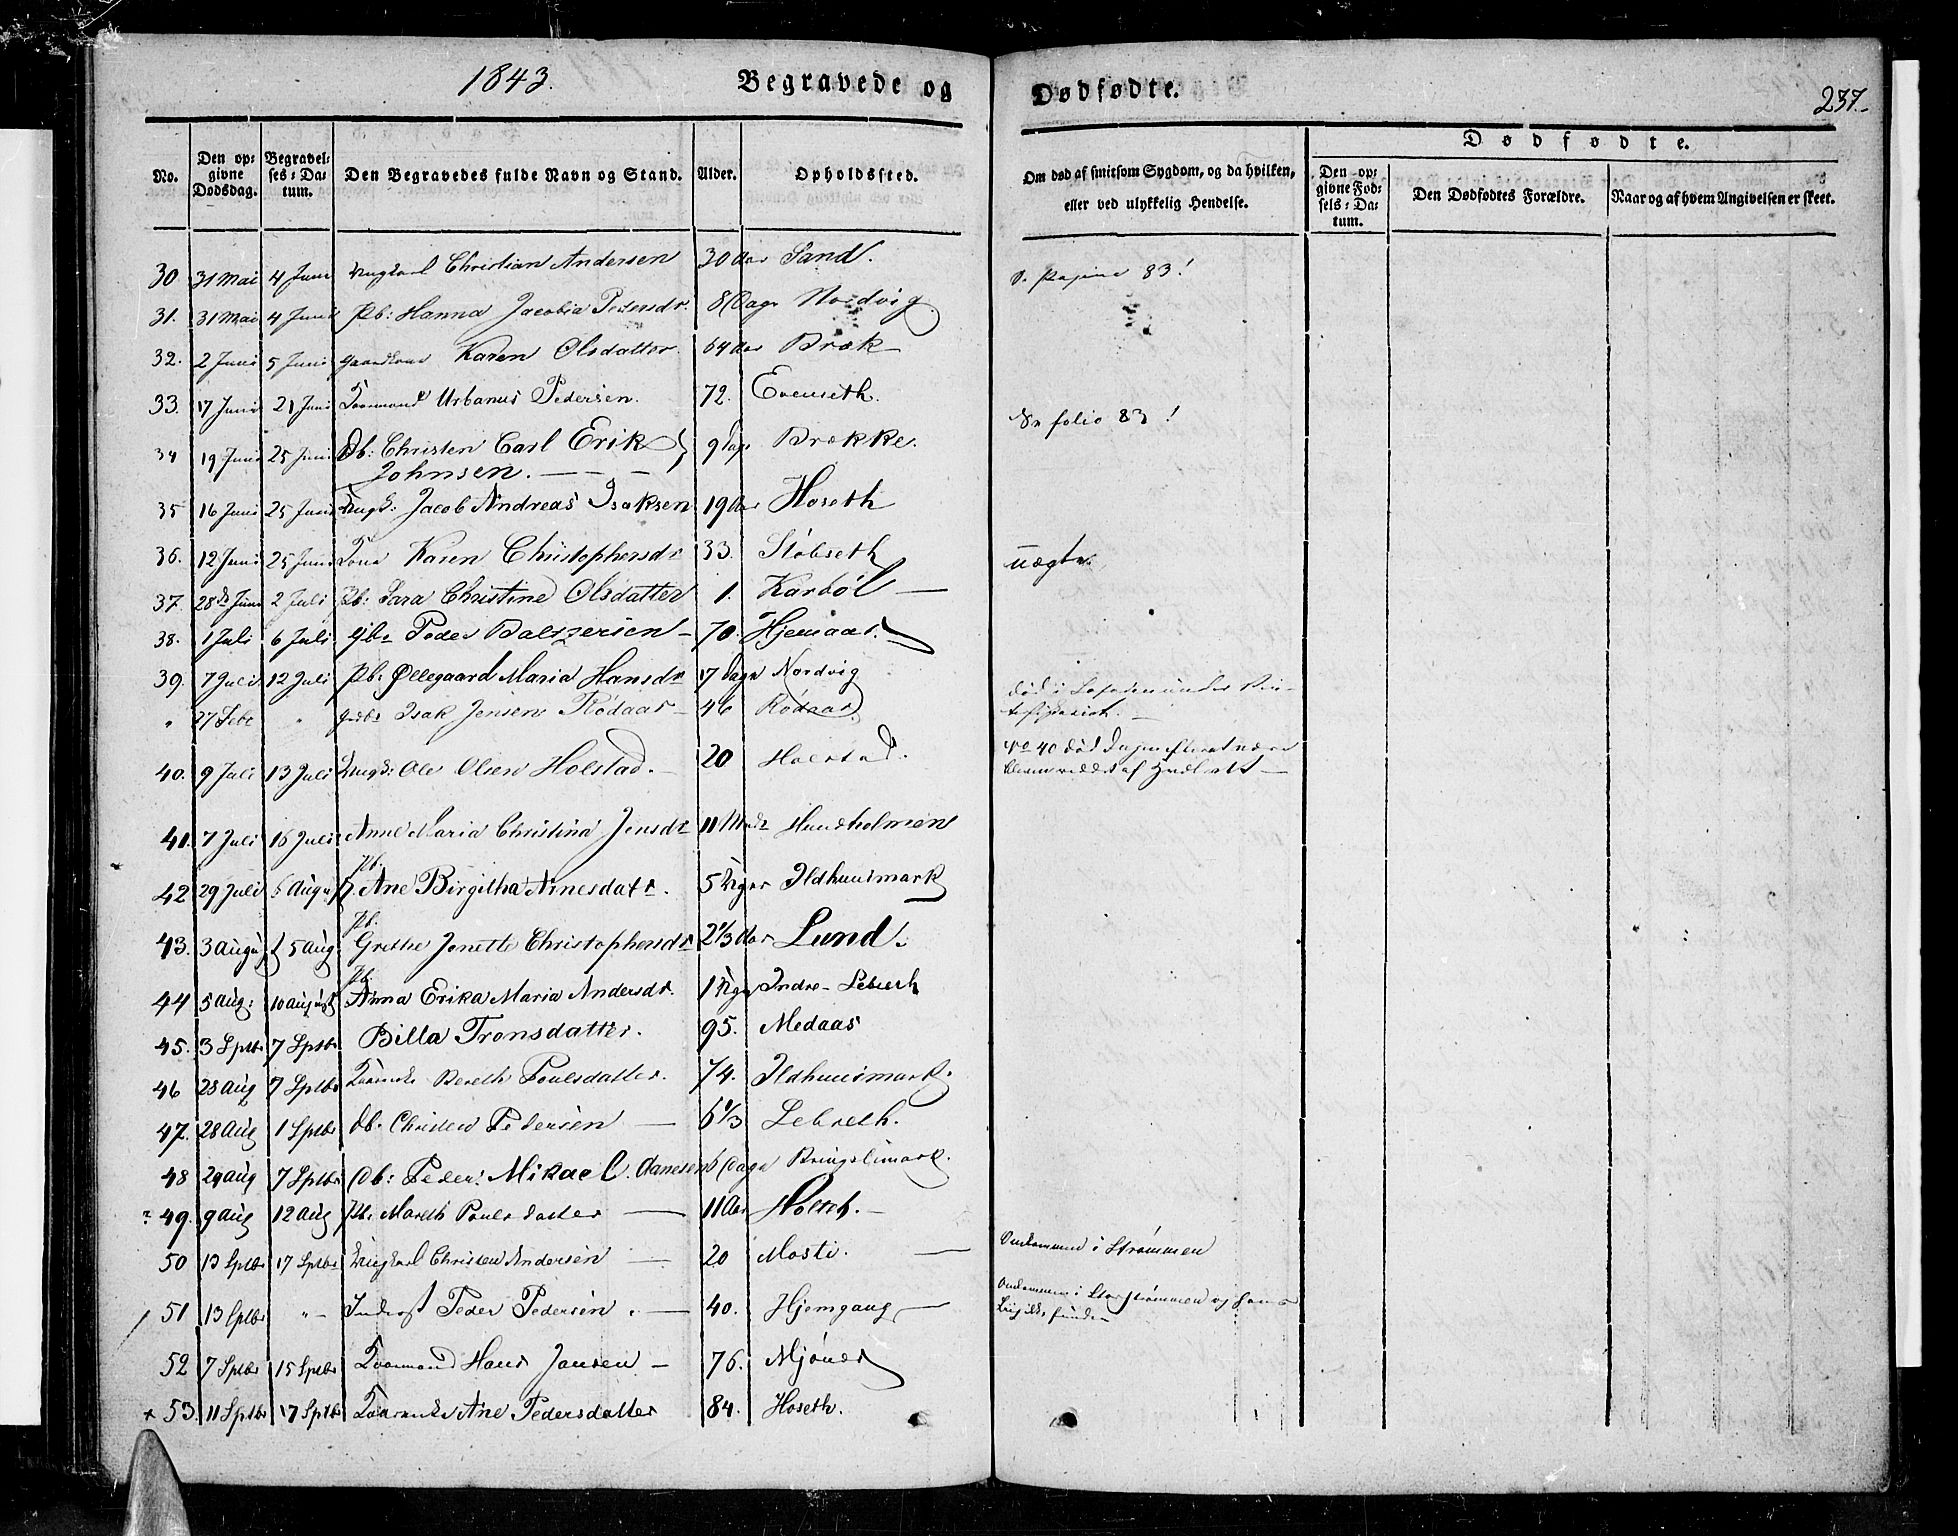 1843. Begravede og Dødfødte. 237.
No. Den opgivne Dødsdag. Begravelses-Datum. Den Begravedes fulde Navn og Stand. Alder. Opholdssted. Om død af smitsom Sygdom, og da hvilken, eller ved ulykkelig Hendelse. Dødfødte. Den opgivne Fødsels-Datum. Den Dødfødtes Forældre. Naar og af hvem Angivelsen er skeet.
30 31 Mai 4 Juni Ungkarl Christian Andersen 30 Aar Sand. v. Pagina 83!
31. 31 Mai 4 Juni Pb: Hanna Jacobia Pedersdr. 8 Dage Nordvig
32. 2 Juni 5 Juni Gaardkone Karen Olsdatter. 64 Aar Bræk
33. 17 Juni 21 Juni Kaarmand Urbanus Pedersen. 72. Evenseth.
folio 83!
34 19 Juni 25 Juni Db: Christen Carl Erik 9 Dage Brække.
Johnsen.
35 16 Juni 25 Juni Ungk: Jacob Andreas Isaksen 19 Aar Hoseth
36. 12 Juni 25 Juni Kone Karen Christophersdr 33. Støbseth
uægte.
37. 28de Juni 2 Juli Pb: Sara Christine Olsdatter 1. Karbøl
38. 1 Juli 6 Juli Peder Baltzersen 70. Hjemaas.
39. 7 Juli 12 Juli Pb: Øllegaard Maria Hansdr 17 Dage Nordvig
" 27 Febr " Isak Jensen Rødaas 46 Rødaas. død i Lofoden under
40. 9 Juli 13 Juli Ungk: Ole Olsen Holstad. 20 Holstad. No 40 død
41. 7 Juli 16 Juli Anne Maria Christina Jensdr 11 Mdr Hundholmen
42 29 Juli 6 August Pb. Ane Birgitha Arnesdatr. 5 Uger Ildhuusmark
43. 3 August 5 Aug Pb. Grethe Jonette Christophersdr 2 1/3 Aar Lund.
44 5 Aug: 10 August Pb. Anna Erika Maria Andersdr. 1 Uge Indre-Lebseth
45. 3 Sptbr 7 Sptbr Billa Tronsdatter. 95. Medaas
46 28 Aug 7 Sptbr Bereth Poulsdatter. 74. Ildhuusmark.
47. 28 Aug 1 Sptbr Db: Christen Pedersen 6 1/3 Lebseth.
48 29 Aug 7 Sptbr Db: Peder Mikael Hansen 6 Dage
49. 9 Aug 12 Aug Pb: Mareth Poulsdatter 11 Aar
50 13 Sptbr 17 Sptbr Ungkarl Christen Andersen 20 Mosti. Omkommen i Strømmen
51 13 Sptbr "- Inderst Peder Pedersen. 40. Hjemgang Omkommen i Storstrømmen og
52 7 Sptbr 15 Sptbr Kaarmand Hans Jansen 76. Mjønes
53. 11 Sptbr 17 Sptbr Ane Pedersdatter 84. Hoseth.